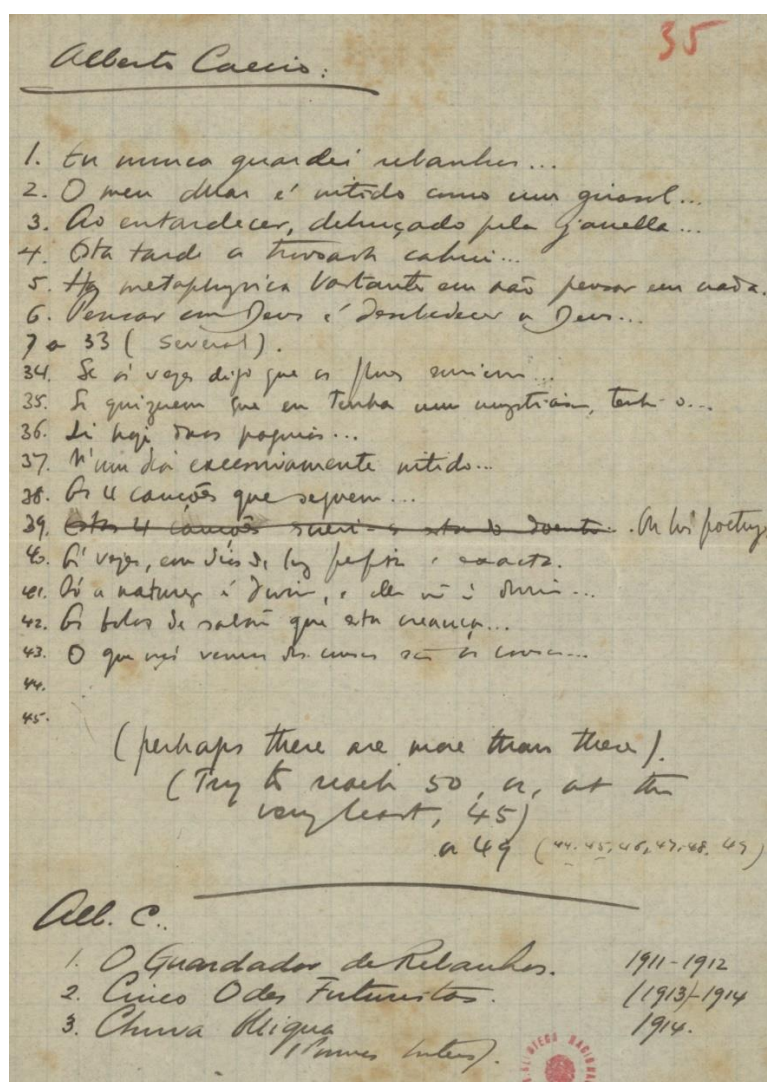 35
Alberto Caeiro:
1. Eu nunca guardei rebanhos...
2. O meu olhar é nitido como um girasol...
3. Ao entardecer, debruçado pela janella...
4. Esta tarde a trovoada cahiu...
5. Ha metaphysica bastante em não pensar em nada.
6. Pensar em Deus é desobedecer a Deus...
7 a 33 (several).
34. Se ás vezes digo que as flores sorriem...
35. Se quizerem que eu tenha um mysticismo, tenho-o...
36. Li hoje duas paginas...
37. N'um dia excessivamente nitido...
38. As 4 canções que seguem...
39. Estas 4 canções escrevi-as estando doente. On his poetry
40. Ás vezes, em dias de luz perfeita e exacta.
41. Só a natureza é divina, e ella não é divina...
42. As bolas de sabão que esta creança...
43. O que nós vemos das cousas são as cousas...
44.
45.
(perhaps there are more than these).
(Try to reach 50, or, at the
very least, 45)
or 49 (44, 45, 46, 47, 48, 49)
Alb. C..
1. O Guardador de Rebanhos. 1911-1912
2. Cinco Odes Futuristas. (1913)-1914
3. Chuva Obliqua 1914.
(Poemas
BIBLIOTECA NACIONAL